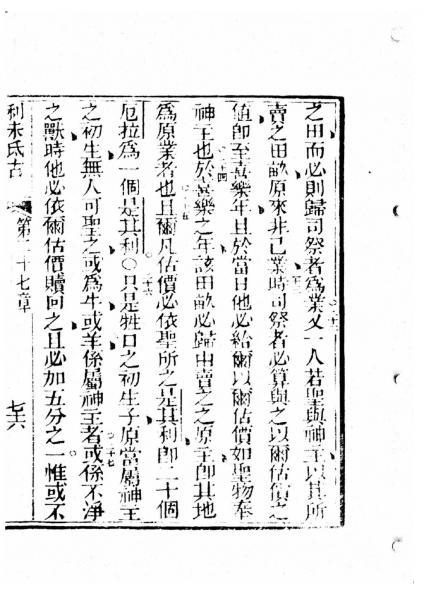 之田而必則歸司祭者爲業又一人若聖與神主以其所
賣之田畝原來非己業時司祭者必算與之以爾估價之
值卽至喜樂年且於當日他必給爾以爾估價如聖物奉
神主也於喜樂之年該田畝必歸由賣之之原主卽其地
爲原業者也且爾凡估價必依聖所之是其利卽二十個
厄拉爲一個是其利○只是牲口之初生子原當屬神主
之初生無人可聖之或爲牛或羊係屬神主者或係不淨
之獸時他必依爾估價贖回之且必加五分之一惟或不
利未氏古 第二十七章 七六
二十三
二十四
二十五
二十六
二十七